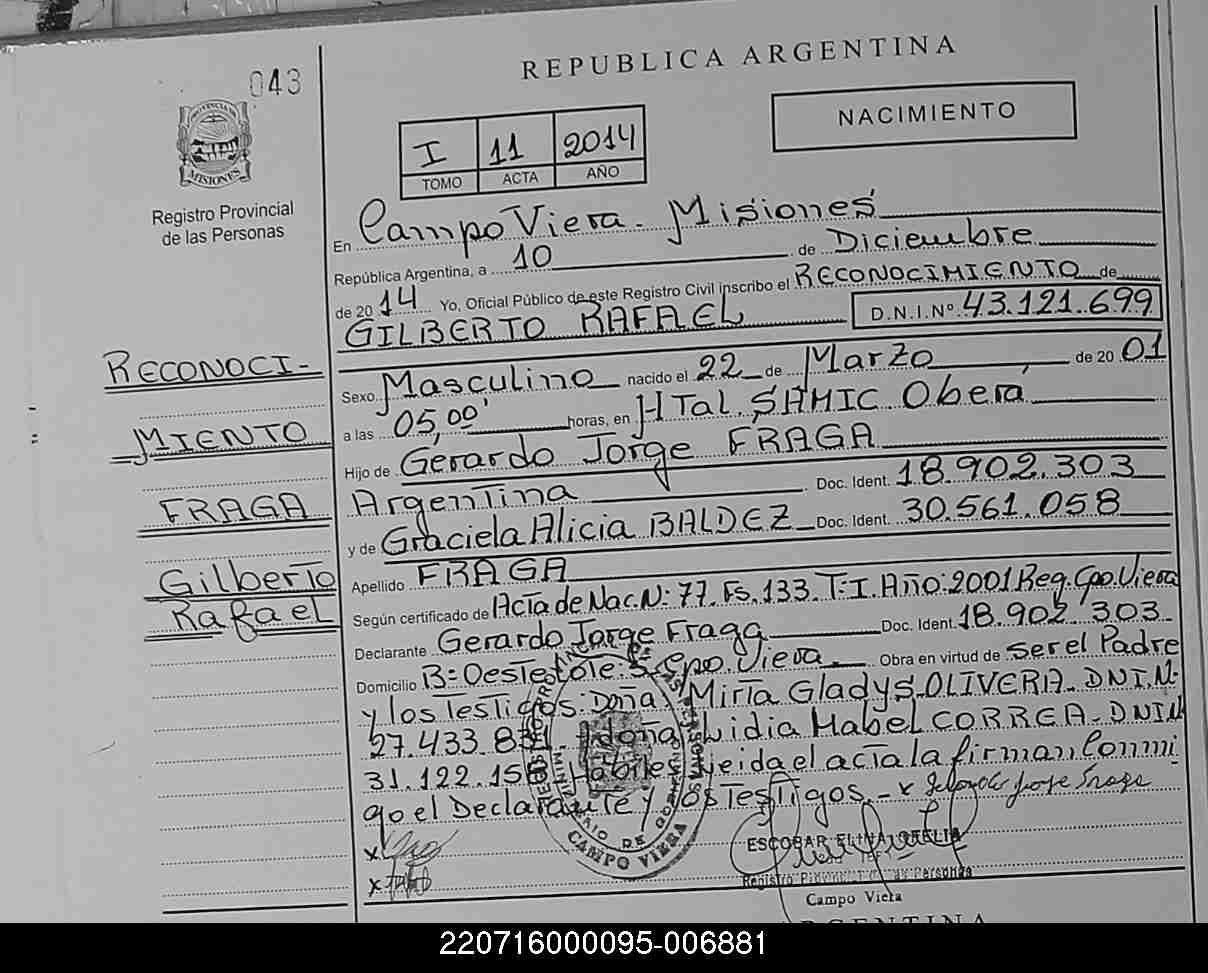 043
REPUBLICA ARGENTINA
NACIMIENTO
I 11 2014
TOMO ACTA AÑO
PROVINCIA DE
MISIONES
Registro Provincial
de las Personas
En Campo Viera - Misiones
República Argentina, a 10 de Diciembre
de 2014 Yo, Oficial Público de este Registro Civil inscribo el RECONOCIMIENTO de
GILBERTO RAFAEL D.N.I.Nº 43.121.699
RECONOCI-
Sexo Masculino nacido el 22 de Marzo de 2001
a las 05,00' horas, en HTal. SAMIC Oberá
MIENTO
Hijo de Gerardo Jorge FRAGA
Argentina Doc. Ident. 18.902.303
FRAGA
y de Graciela Alicia BALDEZ Doc. Ident. 30.561.058
Apellido FRAGA
Gilberto
Rafael
Según certificado de Acta de Nac. N: 77. Fs. 133. T: I. Año: 2001 Reg. Cpo. Viera
Declarante Gerardo Jorge Fraga Doc. Ident. 18.902.303
Domicilio B: Oeste Lote: Cpo. Viera Obra en virtud de ser el Padre
y los Testigos: Doña Mirta Gladys OLIVERA - DNI.N:
27.433.8 doña Lidia Mabel CORREA - DNI.N
31.122.15 Hábiles Leida el acta la firman Conmi
go el Declarante y los Testigos.- x Jorge Fraga
x
x
ESCOBAR ELINA OFELIA
Registro Provincial de las Personas
Campo Viera
CAMPO VIERA
ARGENTINA
220716000095-006881